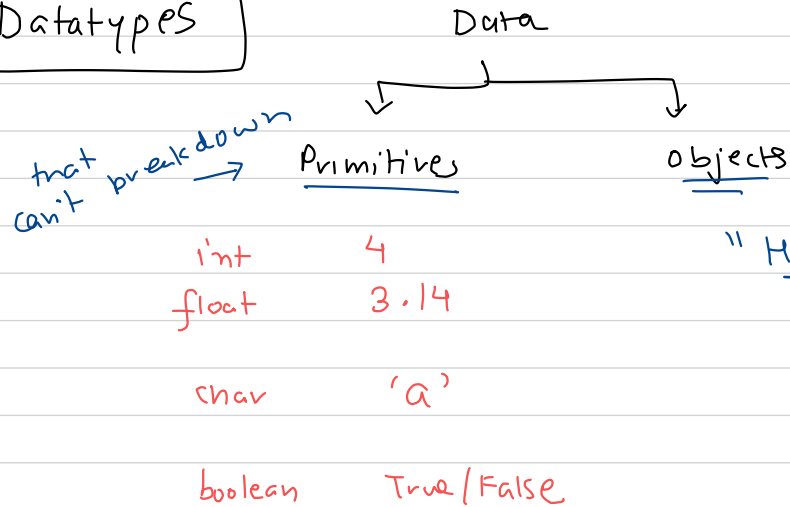 Datatypes
Data
that can't breakdown
Primitives
objects
" H
int 4
float 3.14
char 'a'
boolean True/False